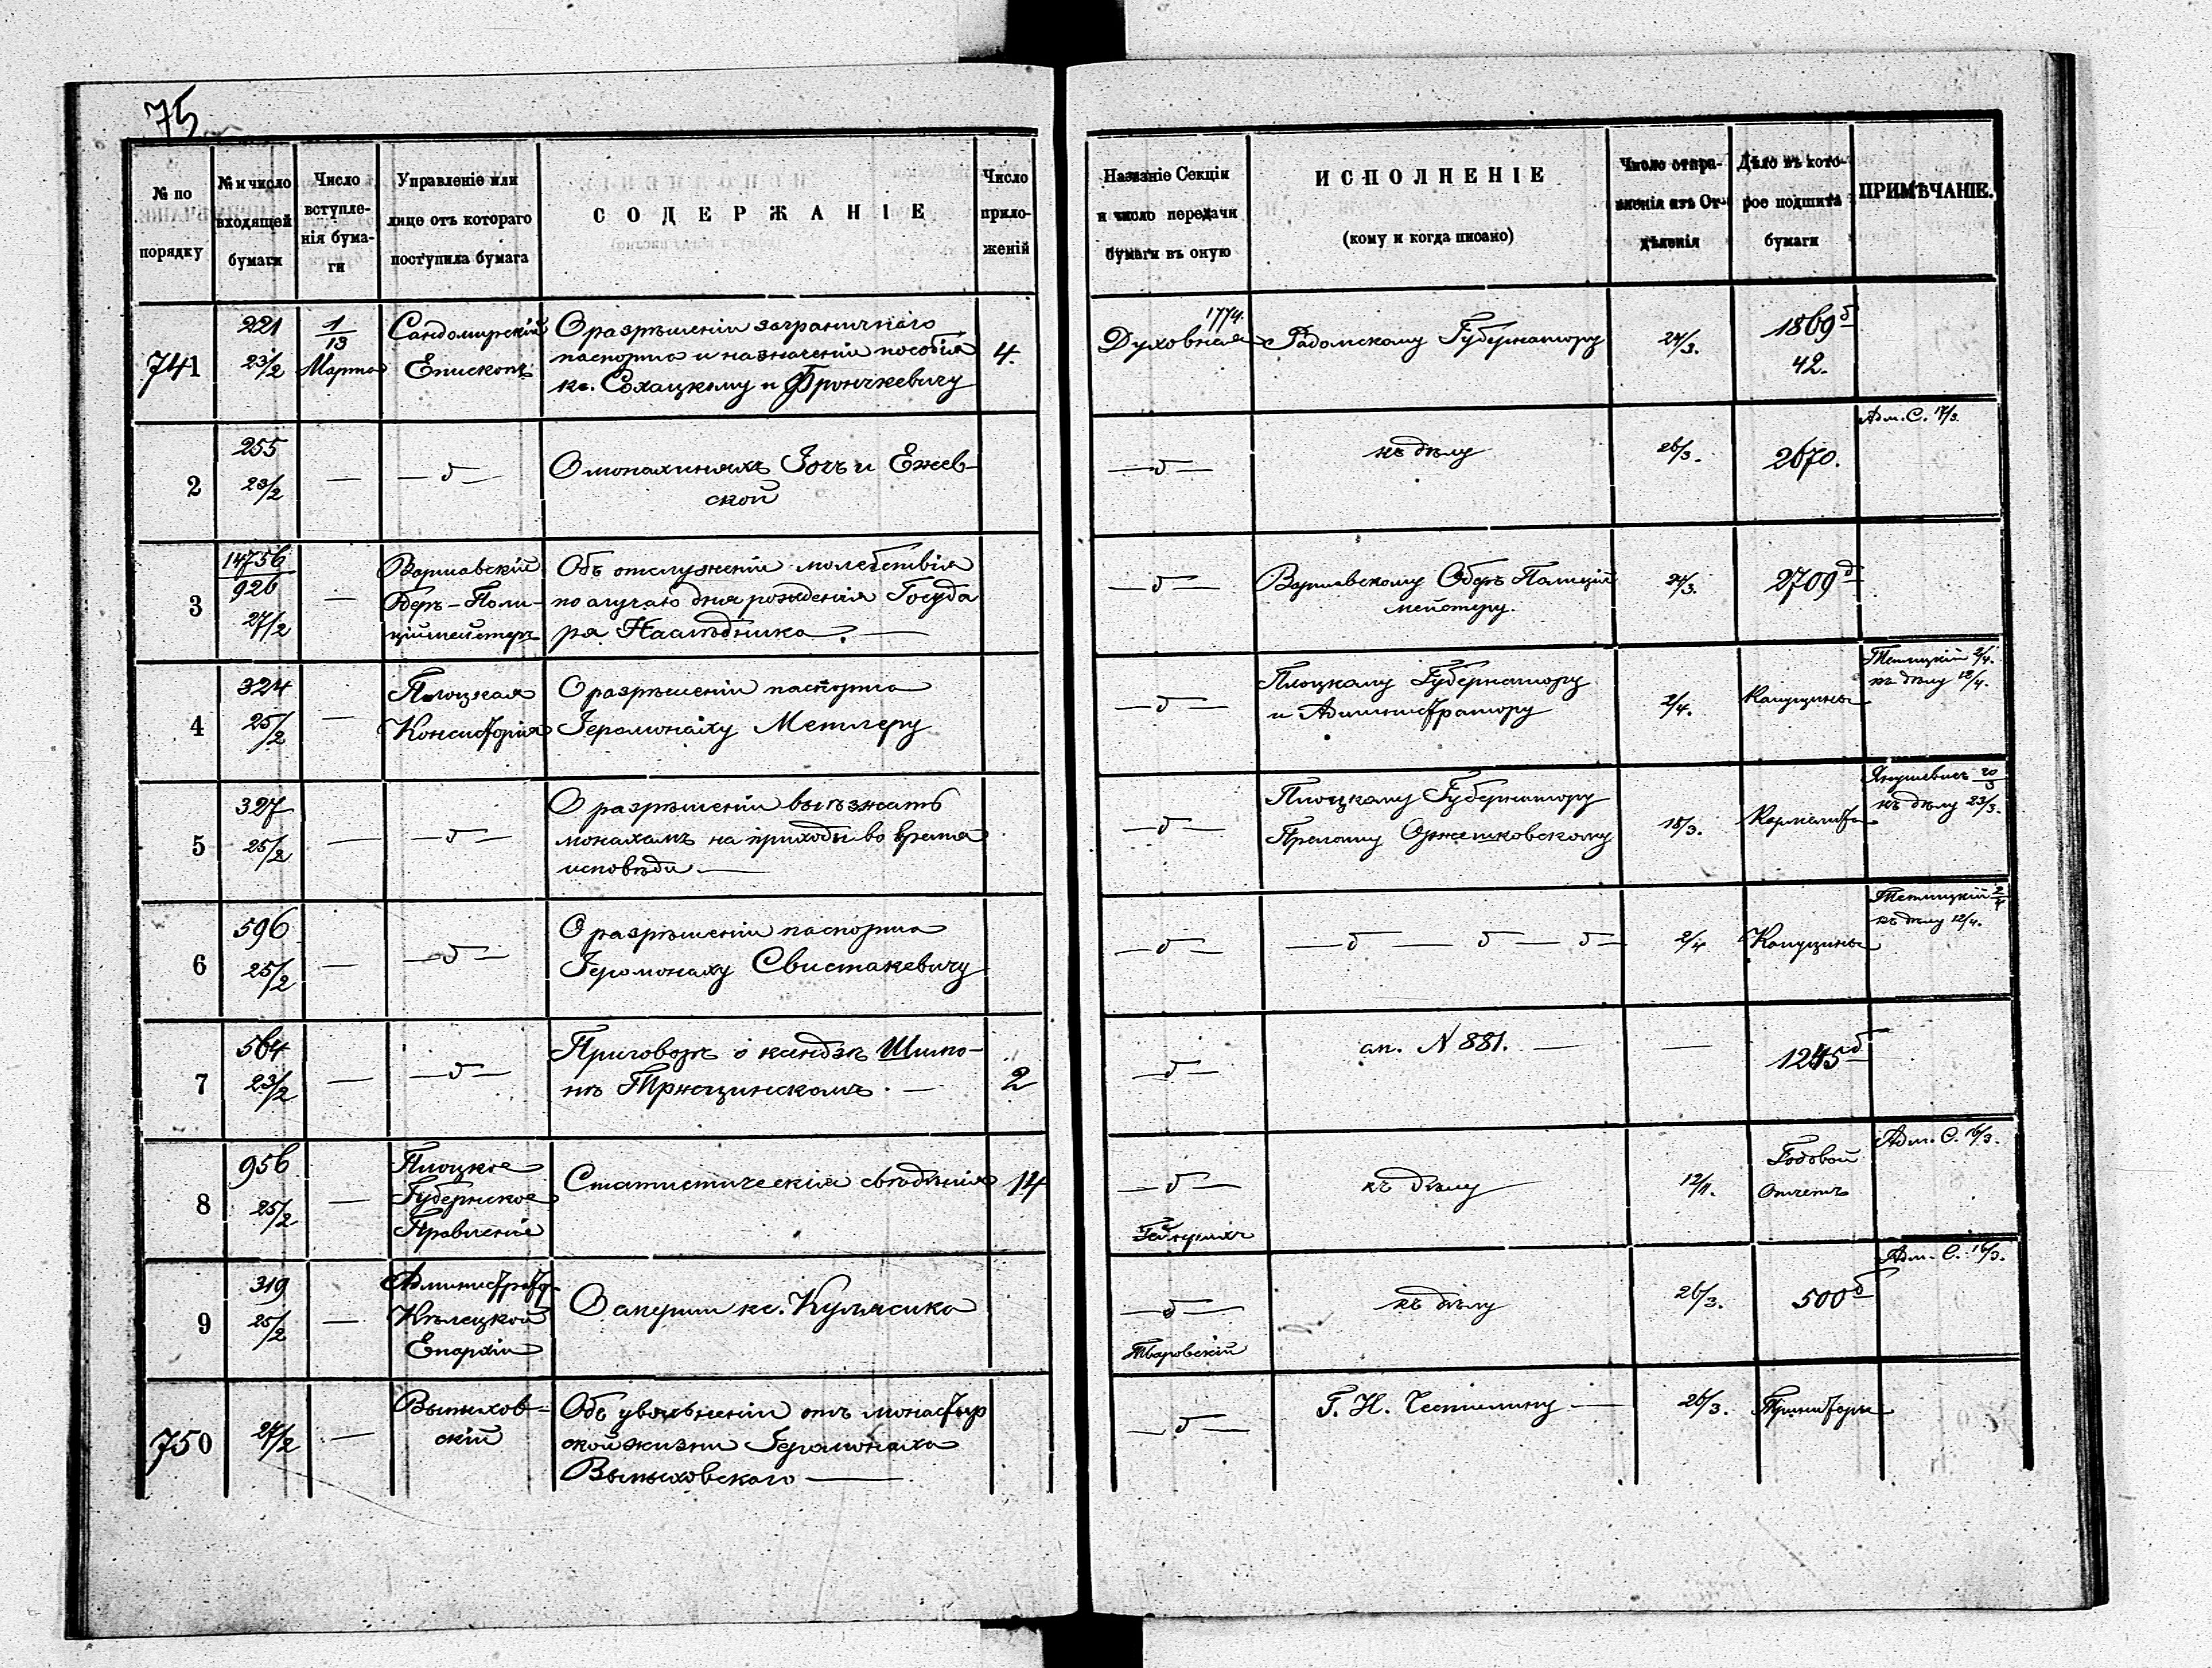 75
№ по порядку
№ и число входящей бумаги
Число вступле-нія бума-ги
Управленіе или лице отъ котораго поступила бумага
СОДЕРЖАНІЕ
Число прило-женій
Названіе Секціи и число передачи бумаги въ оную
ИСПОЛНЕНІЕ
(кому и когда писано)
Число отпра-вленія изъ От-дѣленія
Дѣло въ кото-рое подшита бумага
ПРИМѢЧАНІЕ.
741
221
23/2
1/13
Марта
Сандомирскій
Епископъ
О разрѣшеніи заграничнаго
паспорта и назначеніи пособія
кс. Сохацкому и Брончкевичу
4.
1774.
Духовная
Радомскому Губернатору
24/3.
1869 б
42.
2
255
23/2
—
— δ —
О монахиняхъ Гочъ и Ежев-
ской
— δ —
къ дѣлу
26/3.
2670.
Адм. С. 17/3.
3
14756
926
27/2
—
Варшавскій
Оберъ-Поли-
ціймейстеръ
Объ отслуженіи молебствія
по случаю дня рожденія Госуда
ря Наслѣдника. —
— δ —
Варшавскому Оберъ Полицій
мейстеру.
24/3.
2709 д
4
324
25/2
—
Плоцкая
Консисторія
О разрѣшеніи паспорта
Іеромонаху Метлеру
— δ —
Плоцкому Губернатору
и Администратору
2/4.
Капуцины
2/4.
къ дѣлу 12/4.
5
327
25/2
—
— δ —
О разрѣшеніи выѣзжать
монахамъ на приходы во время
исповѣди —
— δ —
Плоцкому Губернатору
Прелату Оржешковскому
18/3.
Кармелиты
Янушевичъ 20/3
къ дѣлу 23/3.
6
596
25/2
—
— δ —
О разрѣшеніи паспорта
Іеромонаху Свистакевичу
— δ —
— δ — δ — δ —
2/4
Капуцины
2/4
къ дѣлу 12/4.
7
564
23/2
—
— δ —
Приговоръ о ксендзѣ Шимо-
нѣ Тржецинскомъ. —
2
— δ —
ап. N 881. —
—
1245 б
8
956
25/2
—
Плоцкое
Губернское
Правленіе
Статистическія свѣдѣнія
14
— δ —
къ дѣлу
12/11.
Годовой
Отчетъ
Адм. С. 16/3.
9
319
25/2
—
Администраторъ
Кѣлецкой
Епархіи
О смерти кс. Кулясика
— δ —
Тваровскій
къ дѣлу
26/3.
500 б
Адм. С. 16/3.
750
24/2
—
Выпыхов-
скій
Объ увольненіи отъ монастыр
ской жизни Іеромонаха
Выпыховскаго —
— δ —
Г. Н. Честилину —
26/3.